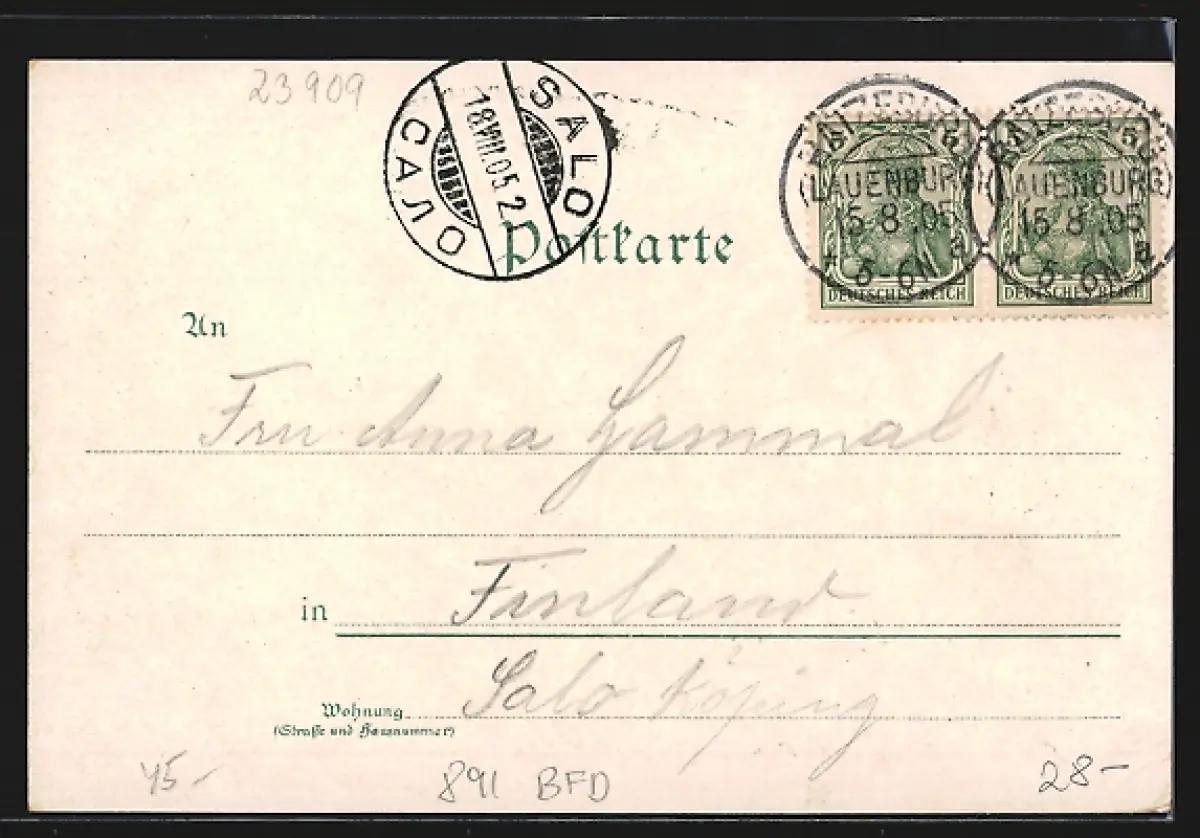 23909
SALO
18.VIII.05.2
САЛО
RATZEBURG
(LAUENBURG)
15.8.05
* 5-6N a
5 5
DEUTSCHES REICH
(LAUENBURG)
15.8.05
* 5-6N a
5
DEUTSCHES REICH
Postkarte
An
Fru Anna Gammal
in Finland
Salo Köping
Wohnung
(Straße und Hausnummer)
45-
891 BFD
28-